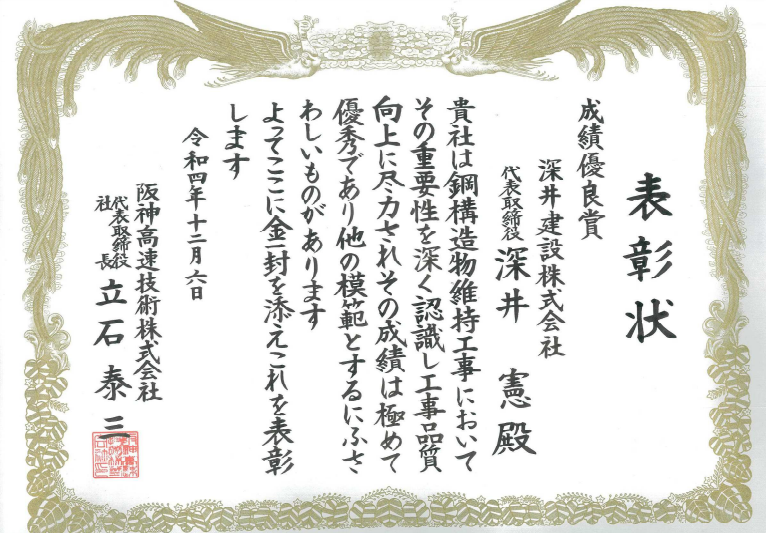 表彰状
成績優良賞
深井建設株式会社
代表取締役 深井 憲 殿
貴社は鋼構造物維持工事において
その重要性を深く認識し工事品質
向上に尽力されその成績は極めて
優秀であり他の模範とするにふさ
わしいものがあります
よってここに金一封を添えこれを表彰
します
令和四年十二月六日
阪神高速技術株式会社
代表取締役社長 立石泰三